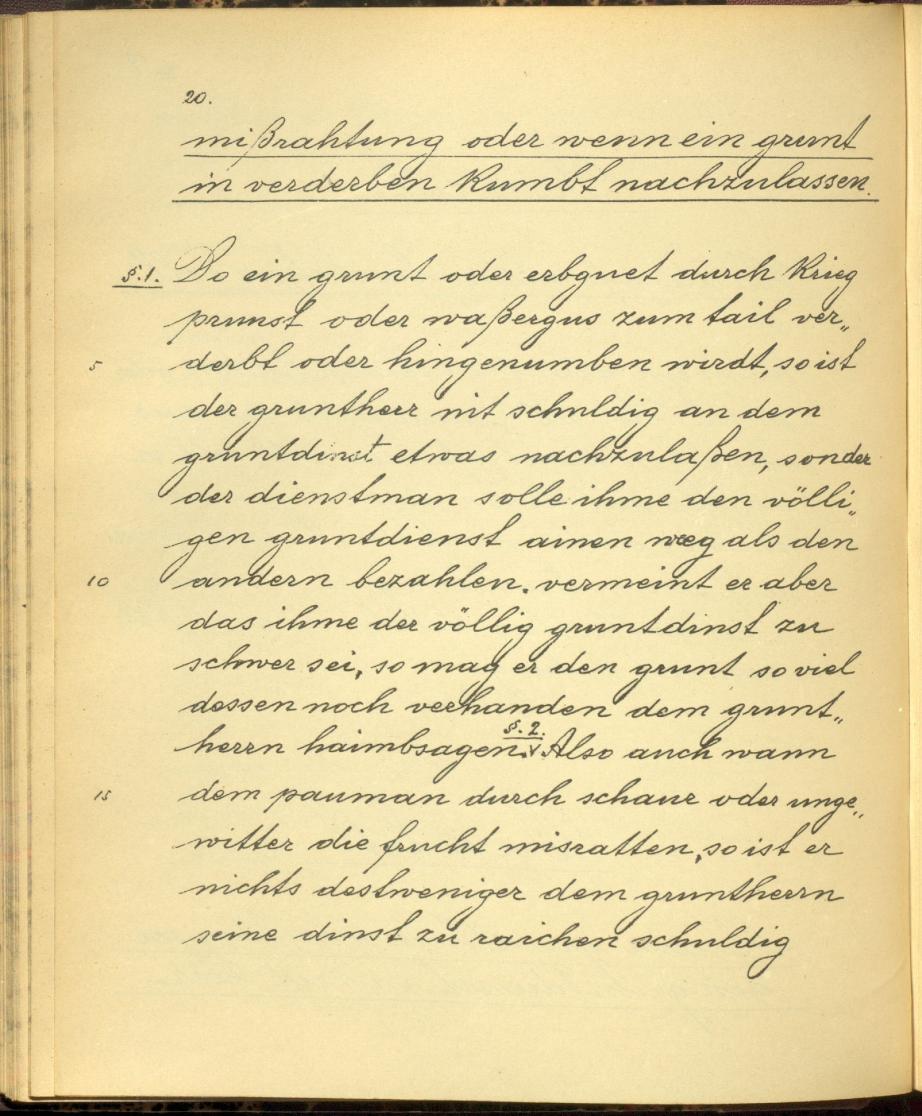 20.
mißrahtung oder wenn ein grunt
in verderben kumbt nachzulassen.
§.1. Do ein grunt oder erbguet durch krieg
prunst oder waßergus zum tail ver„
5 derbt oder hingenumben wirdt, so ist
der gruntherr nit schuldig an dem
gruntdinst etwas nachzulaßen, sonder
der dienstman solle ihme den völli„
gen gruntdienst ainen weg als den
10 andern bezahlen. vermeint er aber
das ihme der völlig gruntdinst zu
schwer sei, so mag er den grunt so viel
dessen noch verhanden dem grunt„
herrn haimbsagen. §.2. Also auch wann
15 dem pauman durch schaur oder unge„
witter die frucht misratten, so ist er
nichts destweniger dem gruntherrn
seine dinst zu raichen schuldig